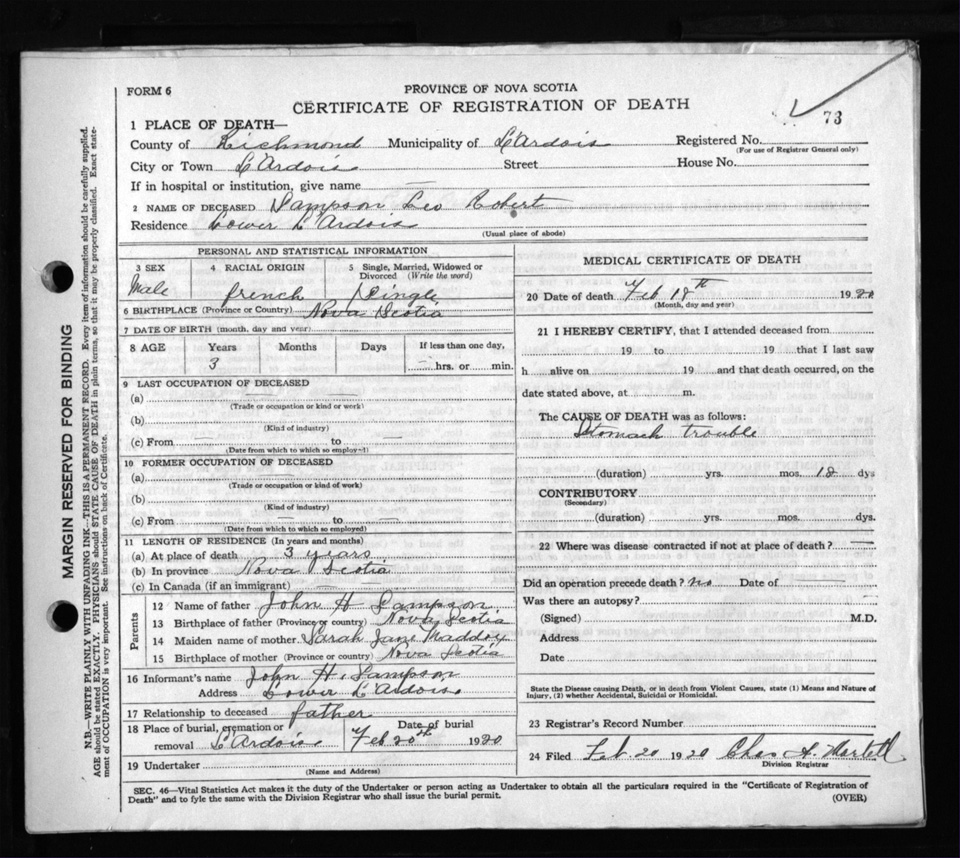 FORM 6
PROVINCE OF NOVA SCOTIA
CERTIFICATE OF REGISTRATION OF DEATH
73
1 PLACE OF DEATH—
County of Richmond Municipality of L'Ardois Registered No.
(For use of Registrar General only)
City or Town L'Ardois Street House No.
If in hospital or institution, give name —
2 NAME OF DECEASED Sampson Leo Robert
Residence Lower L'Ardois
(Usual place of abode)
PERSONAL AND STATISTICAL INFORMATION
3 SEX 4 RACIAL ORIGIN 5 Single, Married, Widowed or Divorced (Write the word)
Male french Single
6 BIRTHPLACE (Province or Country) Nova Scotia
7 DATE OF BIRTH (month, day and year)
8 AGE Years Months Days If less than one day,
3 — hrs. or min.
9 LAST OCCUPATION OF DECEASED
(a) — —
(Trade or occupation or kind or work)
(b)
(Kind of industry)
(c) From — to —
(Date from which to which so employed)
10 FORMER OCCUPATION OF DECEASED
(a)
(Trade or occupation or kind of work)
(b)
(Kind of industry)
(c) From — to —
(Date from which to which so employed)
11 LENGTH OF RESIDENCE (In years and months)
(a) At place of death 3 years
(b) In province Nova Scotia
(c) In Canada (if an immigrant) — —
Parents
12 Name of father John H Sampson
13 Birthplace of father (Province or country) Nova Scotia
14 Maiden name of mother Sarah Jane Maddox
15 Birthplace of mother (Province or country) Nova Scotia
16 Informant's name John H. Sampson
Address Lower L'Ardois
17 Relationship to deceased father
18 Place of burial, cremation or removal L'Ardois
Date of burial
Feb 20th 1920
19 Undertaker
(Name and Address)
MEDICAL CERTIFICATE OF DEATH
20 Date of death Feb 18th 1920
(Month, day and year)
21 I HEREBY CERTIFY, that I attended deceased from
19 to 19 that I last saw
h alive on 19 and that death occurred, on the
date stated above, at m.
The CAUSE OF DEATH was as follows:
Stomach trouble
(duration) yrs. mos. 18 dys
CONTRIBUTORY
(Secondary)
(duration) yrs. mos. dys.
22 Where was disease contracted if not at place of death? —
Did an operation precede death? no Date of —
Was there an autopsy?
(Signed) M.D.
Address
Date
State the Disease causing Death, or in death from Violent Causes, state (1) Means and Nature of
Injury, (2) whether Accidental, Suicidal or Homicidal.
23 Registrar's Record Number
24 Filed Feb 20 1920 Chas A. Martell
Division Registrar
SEC. 46—Vital Statistics Act makes it the duty of the Undertaker or person acting as Undertaker to obtain all the particulars required in the "Certificate of Registration of
Death" and to fyle the same with the Division Registrar who shall issue the burial permit.
(OVER)
MARGIN RESERVED FOR BINDING
N.B.—WRITE PLAINLY WITH UNFADING INK—THIS IS A PERMANENT RECORD. Every item of information should be carefully supplied.
AGE should be stated EXACTLY. PHYSICIANS should STATE CAUSE OF DEATH in plain terms, so that it may be properly classified. Exact state-
ment of OCCUPATION is very important. See instructions on back of Certificate.